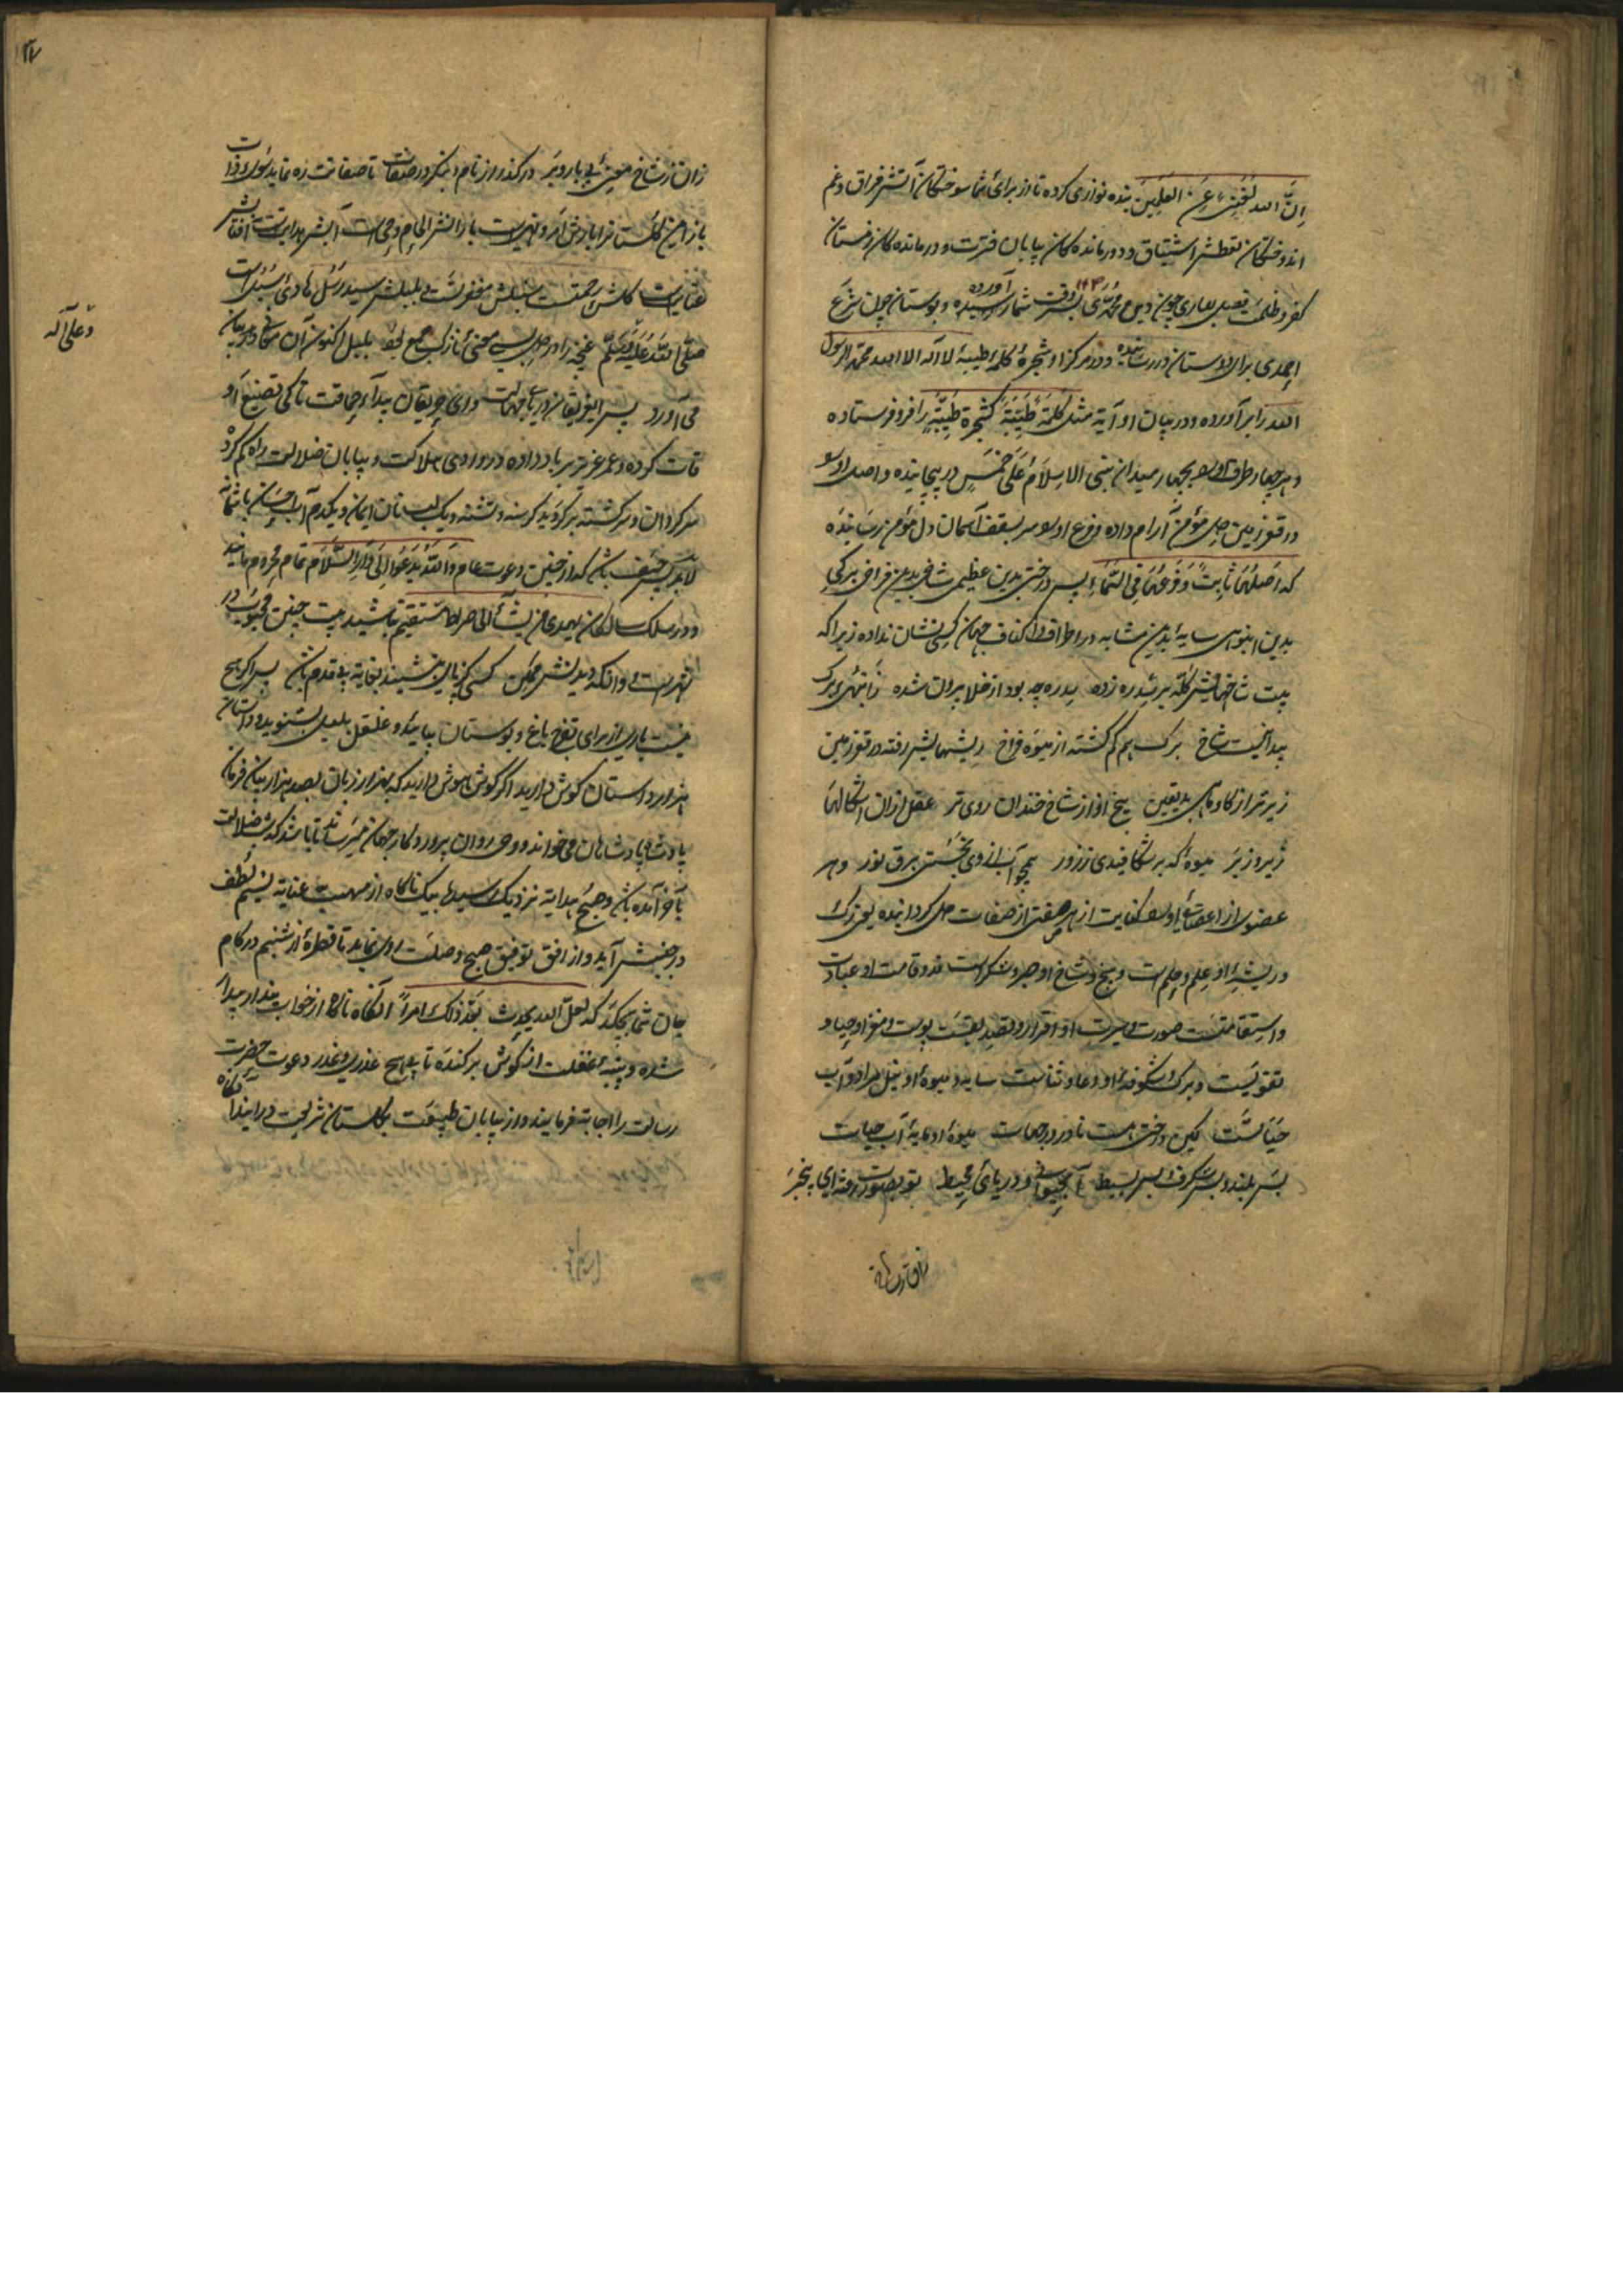 اِنَّ الله لغنیٌ عن العلمین بنده نوازی کرده تا از برای شما سوختگان آتش فراق و غم
اندوختگان تعطش اشتیاق و دورمانده کان بیابان فترت و درمانده کان زمستان
کفر و ظلمت فصل بهاری چون دین محمدی بسر وقت شما رسیده آورده و بوستان چون شرع
احمدی برای دوستان در رسانیده و در مرکز او شجره کلمه طیبه لا اله الا الله محمد الرسول
الله را برآورده و در بیان او آیة مثل کلمة طیبة کشجرة طیبة را فرو فرستاده
و هر چهار طرف او بچهار میدان بنی الاسلام علی خمس در پیچانیده و اصل او
در قعر زمین دل مؤمن آرام داده و فرع او سر بسقف آسمان دل مؤمن رسانیده
که اصلها ثابت و فرعها فی السماء پس درختی بدین عظیمی شاخی بدین فراخی برکی
بدین انبوهی سایه بدین مشابه در اطراف و اکناف جهان کسی نشان نداده زیرا که
بیت شاخهایش کله بر سدره زده سدره چه بود از خلا بیرون شده ز انبهی برک
پیدا نیست شاخ برک هم کم کشته از میوه فراخ ریشهایش رفته در قعر زمین
زیرتر از کاو ماهی بد یقین بیخ او از شاخ خندان روی تر عقل از آن اشکالها
زیر و زبر میوهٔ که بر شکافیدی ز زور همچو آب از وی بجستی برق نور و هر
عضوی از اعضای او کنایت از هر صفتی از صفات دل کردانیده یعنی رک
و ریشهٔ او علم و حلم است و بیخ و شاخ او صبر و شکر است قد و قامت او عبادت
و استقامتست صورت و سیرت او اقرار و تصدیقست پوست و مغز او حیا و
تقویست و برک و شکوفهٔ او دعا و ثناست سایه و میوهٔ او نیل مراد و آب
حیاتست لیکن درختی است نادر در جهات میوهٔ او مایهٔ آب حیات
بس بلند و بس شکرف و بس بسیط آب حیوانی و دریای محیط تو بصورت رفتهٔ ای بیخبر
زان ز شاخ معنیٔ بی بار و بر در کذر از نام و بنکر در صفات تا صفاتت ره نماید سوی ذات
باز این کلستانرا بارش امر و نهیست بارانش الهام و وحی است آبش هدایتست آفتابش
عنایت کلش رحمت سنبلش مغفرتست و بلبلش سید رسل هادی سبل است
صلی الله علیه وسلم
وعلی آله
می آورد پس ای غریقان دریای جهالت و ای حریقان بیدای حماقت تا کی تضییع او
قات کرده و عمر عزیز بر باد داده در وادی هلاکت و بیابان ضلالت راه کم کرده
سرکردان و سرکشته برکردید کرسنه و تشنه و یک لب نان ایمان و یکدم آب احسان باشما
لابد پس حیف باشد که از چنین دعوت عام والله یدعوا الی دار السلام تمام محروم مانید
و در سلک سالکان یهدی من یشاء الی صراط مستقیم نباشید بیت چنین محبوب در
شهرست و وانکه دیدنش ممکن کسی کز پای بنشیند بغایة بی قدم باشد پس اکر هیچ
نیست باری از برای تفرج باغ و بوستان بیایید و غلغل بلبل بشنوید و داستان
هزار داستان کوش دارید اکر کوش هوش دارید که بهزار زبان بصد هزار بیان فرمان
پادشاه پادشاهان می خواند و وحی روان پروردکار جهان میرساند تا باشد که شب ضلالت
بآخر آمده باشد و صبح هدایة نزدیک رسیده بیک ناکاه از مهب عنایة نسیم لطف
در جنبش آید و از افق توفیق صبح وصلت روی نماید تا قطرهٔ از شبنم در کام
جان شما بچکد که لعل الله یحدث بعد ذلک امراً آنکاه ناکاه از خواب پندار بیدار
شده و پنبهٔ غفلت از کوش برکنده تا بی هیچ عذری و غدر دعوت حضرت
رسالت را اجابة فرمایند و از بیابان طبیعت بکلستان شریعت درآیند آنکاه